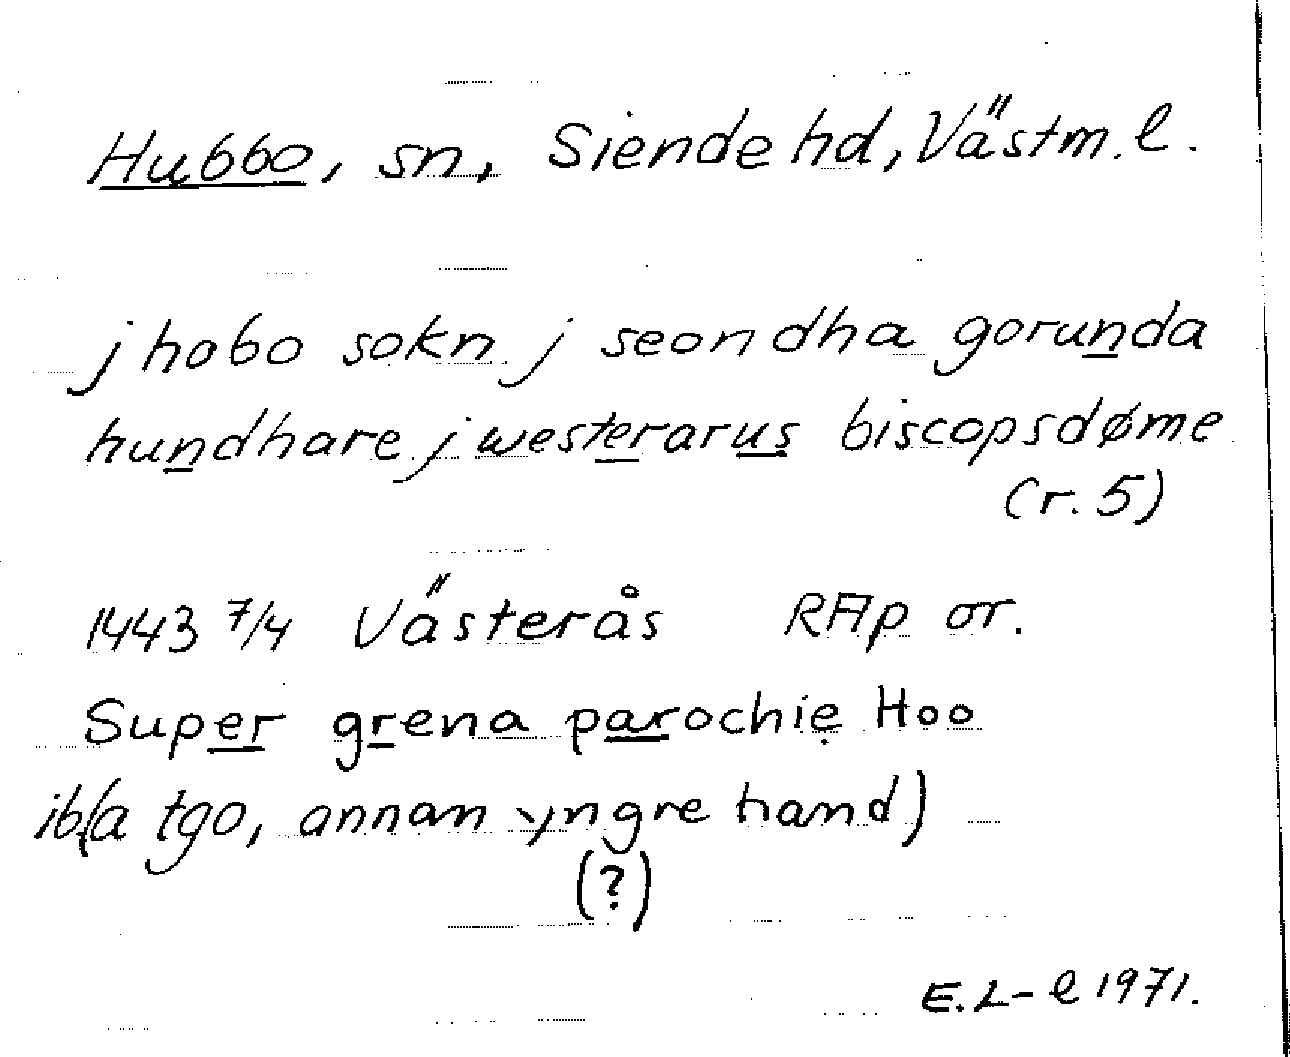 Hubbo, sn, Siende hd, Västm. l.
j hobo sokn j seondha gorunda
hundhare j westerarus biscopsdøme
(r. 5)
1443 7/4 Västerås RAp or.
Super grena parochie Hoo
ib (a tgo, annan yngre hand)
(?)
E. L-l 1971.